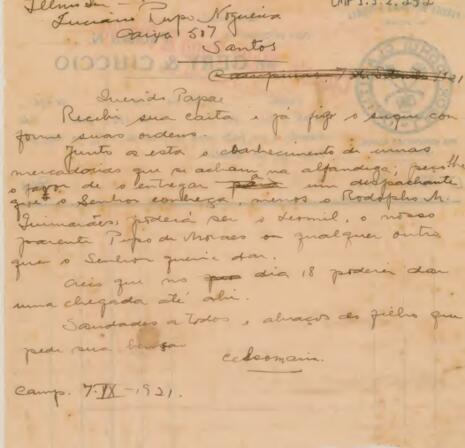 Illmo Snr
Luciano Pupo Nogueira
Caixa 507
Santos
Campinas, 7 de 1921
Querido Papae
Recebi sua carta e já fiz o que con
forme suas ordens.
Junto a esta o conhecimento de umas
mercadorias que se acham na alfandega; peço-lhe
o favor de o entregar a um despachante
que o Senhor conheça, menos o Rodolpho M.
Guimarães, poderá ser o o nosso
parente Pupo de Moraes ou qualquer outro
que o Senhor queira dar.
Creio que no dia 18 poderei dar
uma chegada até ahi.
Saudades a todos e abraços do filho que
pede sua bençam
Camp. 7-IX-1921.